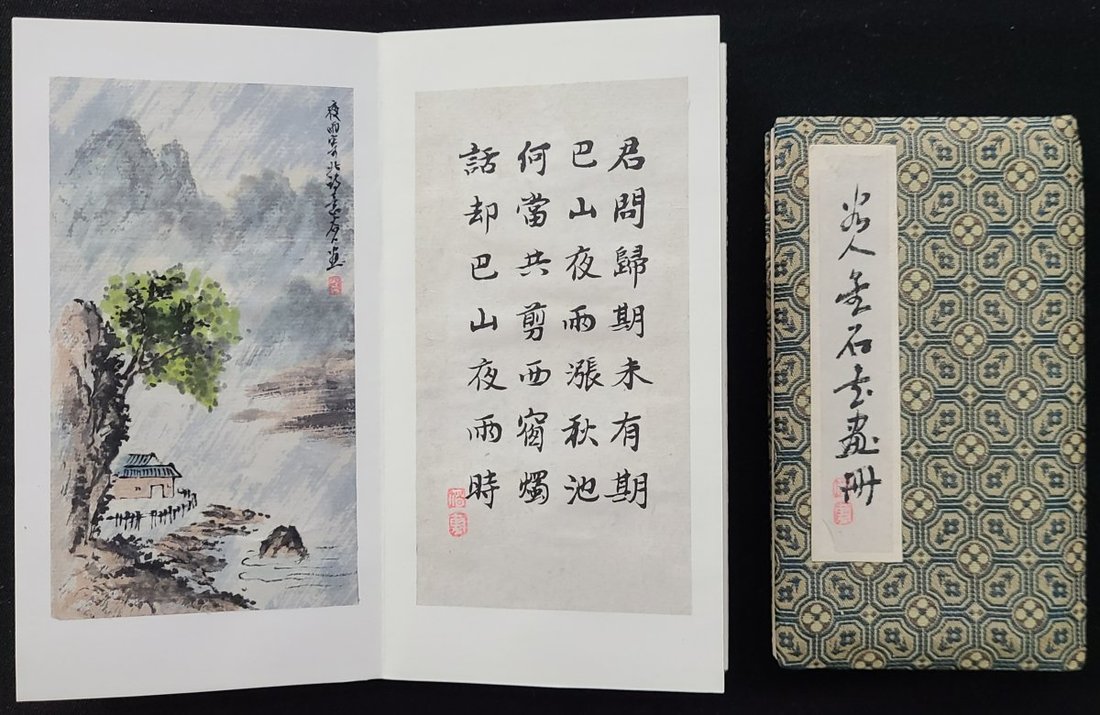 夜雨寄北詩意
君問歸期未有期
巴山夜雨漲秋池
何當共剪西窗燭
話却巴山夜雨時
人金石書畫冊